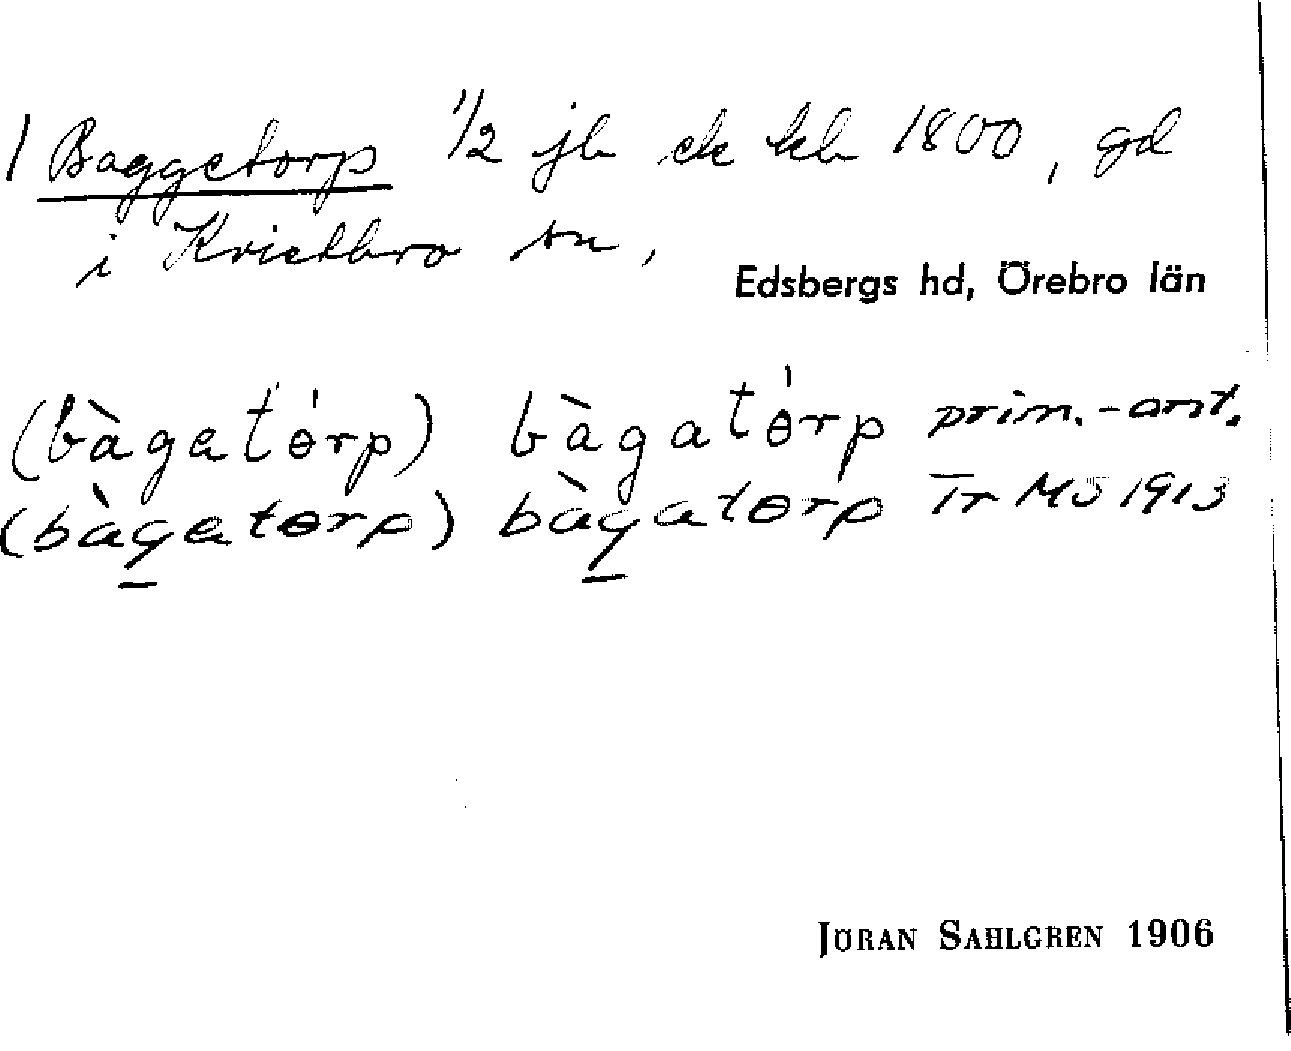 1 Baggetorp 1/2 jb ek kb 1800, gd
i Kvistbro sn,
Edsbergs hd, Örebro län
(bàgatɵ́rp) bàgatɵ́rp prim.-ant.
(bàgatɵrp) bàgatɵrp Tr MS 1913
JÖRAN SAHLGREN 1906